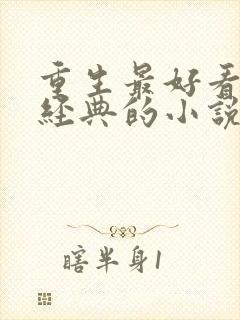 重生最好看
經典的小說
瞎半身1